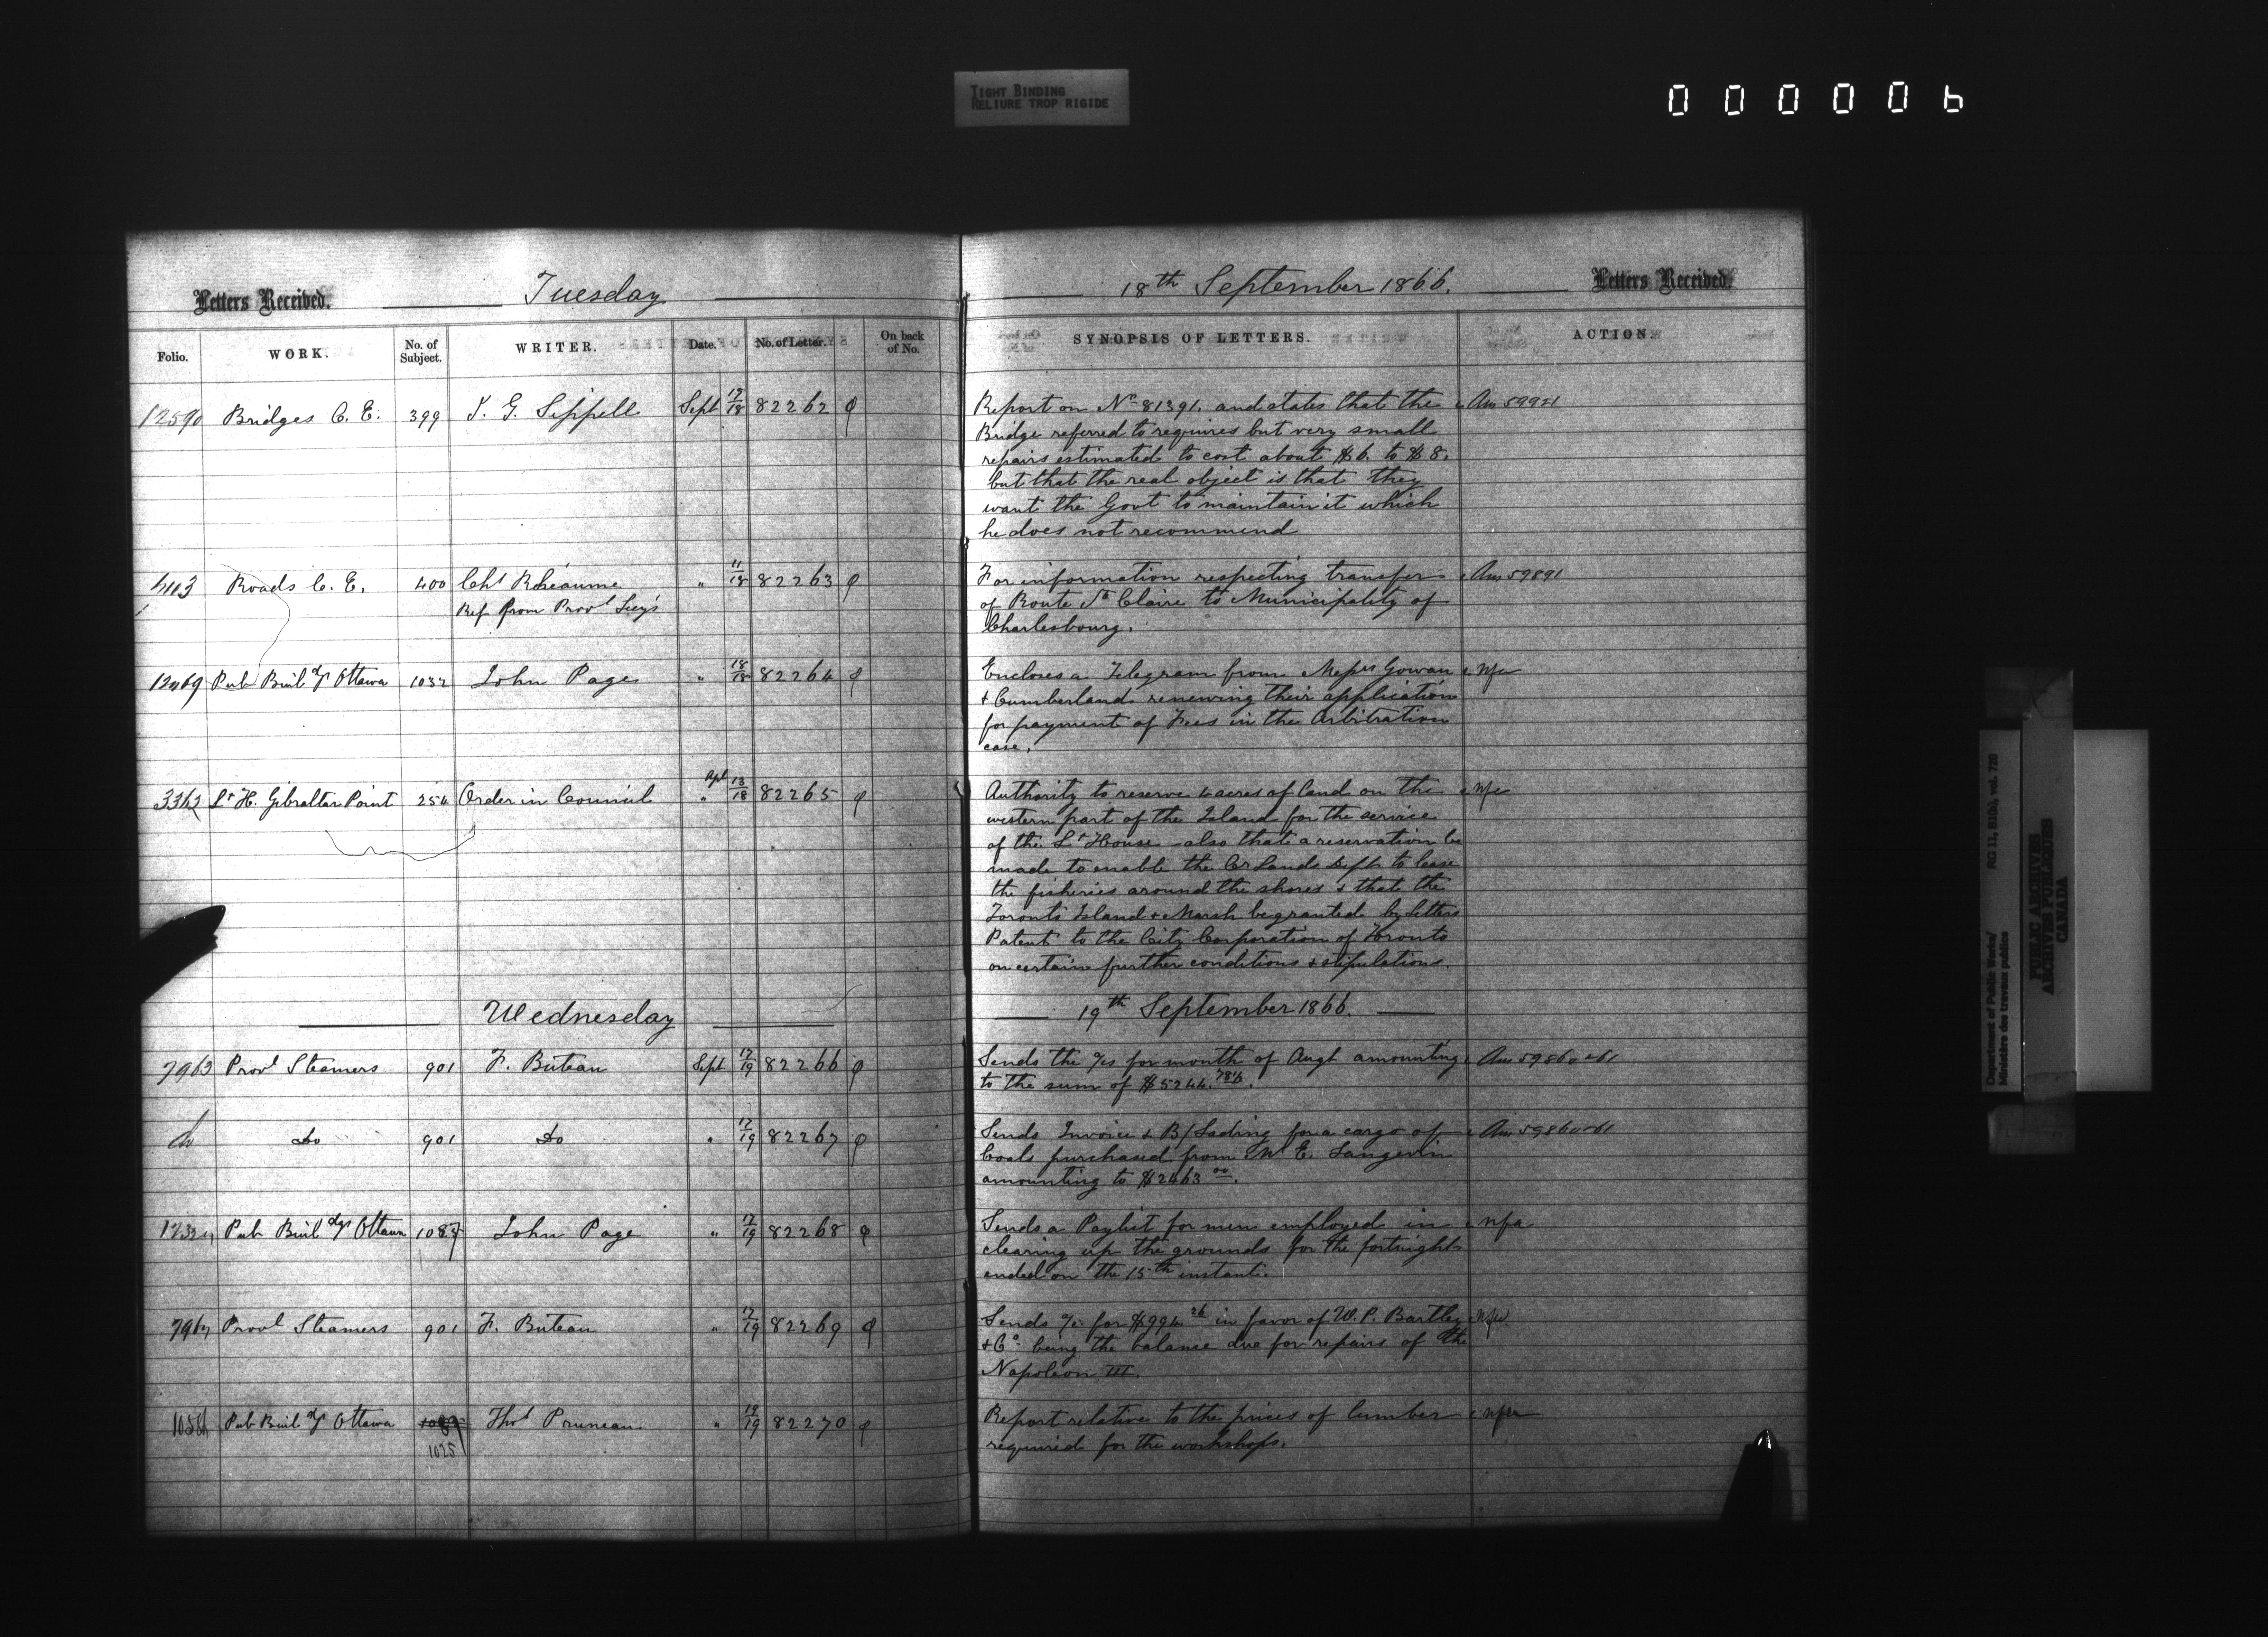 TIGHT BINDING
RELIURE TROP RIGIDE
000006
Letters Received. Tuesday 18th September 1866. Letters Received.
Folio. WORK. No. of Subject. WRITER. Date. No. of Letter. On back of No. SYNOPSIS OF LETTERS. ACTION.
12590 Bridges C. E. 399 T. G. Sippell Sept 17/18 82262 Report on No 81391. and states that the Ans 59921
Bridge referred to requires but very small
repairs estimated to cost about $6. to $8.
but that the real object is that they
want the Govt to maintain it which
he does not recommend
4113 Roads C. E. 400 Chs Rhéaume " 11/18 82263 For information respecting transfer Ans 59891
Ref from Provl Secy's of Route Ste Claire to Municipality of
Charlesbourg.
12469 Pub Buildgs Ottawa 1032 John Page " 18/18 82264 Encloses a Telegram from Messrs Gowan nfa
& Cumberland renewing their application
for payment of Fees in the Arbitration
case.
3362 Lt H. Gibraltar Point 254 Order in Council Apl " 13/18 82265 Authority to reserve 4 acres of land on the nfa
western part of the Island for the service
of the Lt House also that a reservation be
made to enable the Cr Lands Dept to lease
the fisheries around the shores & that the
Toronto Island & Marsh be granted by Letters
Patent to the City Corporation of Toronto
on certain further conditions & stipulations.
Wednesday 19th September 1866.
7963 Provl Steamers 901 F. Buteau Sept 17/19 82266 Sends the a/cs for month of Augt amounting Ans 59860 & 61
to the sum of $5244.78½.
do do 901 do " 17/19 82267 Sends Invoice & B/Lading for a cargo of Ans 59860 & 61
Coals purchased from Mr E. Langevin
amounting to $2463 00.
Pub Buildgs Ottawa 1087 John Page " 17/19 82268 Sends a Paylist for men employed in nfa
clearing up the grounds for the fortnight
ended on the 15th instant.
Provl Steamers 901 F. Buteau " 17/19 82269 Sends a/c for $994 26 in favor of W. P. Bartley nfa
& Co. being the balance due for repairs of the
Napoleon III.
Pub Buildgs Ottawa 1087 Thos Pruneau " 19/19 82270 Report relative to the prices of lumber nfa
1025 required for the workshops.
Department of Public Works/ RG 11, B1(b), vol. 728
Ministère des travaux publics
PUBLIC ARCHIVES
ARCHIVES PUBLIQUES
CANADA